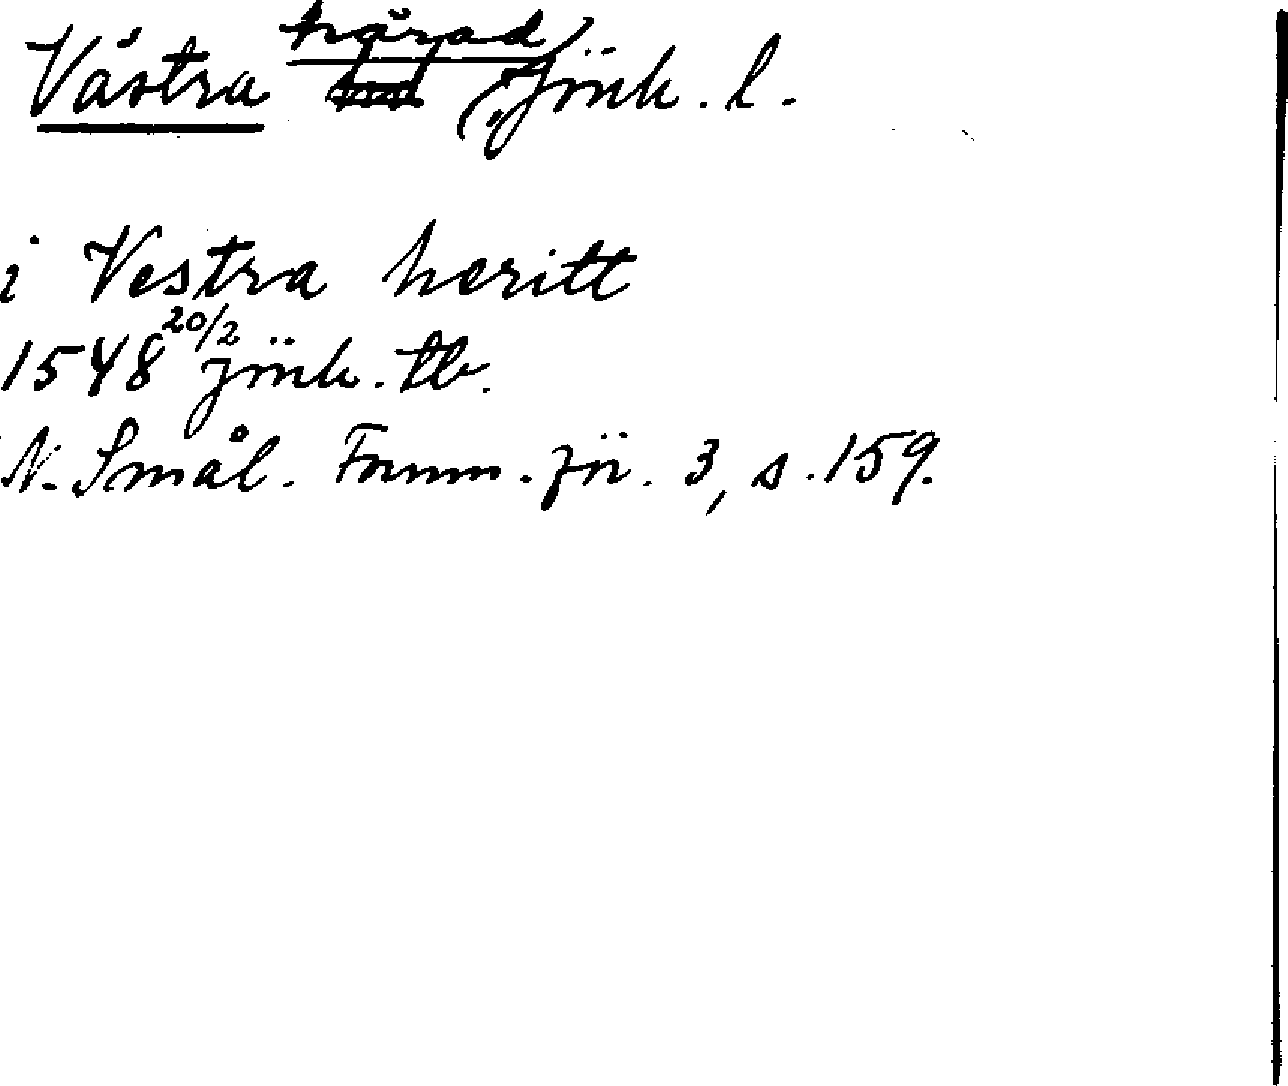 Västra härad, Jönk. l.
i Vestra heritt
1548 20/2 Jönk. tb.
N. Smål. Fornm.för. 3, s. 159.